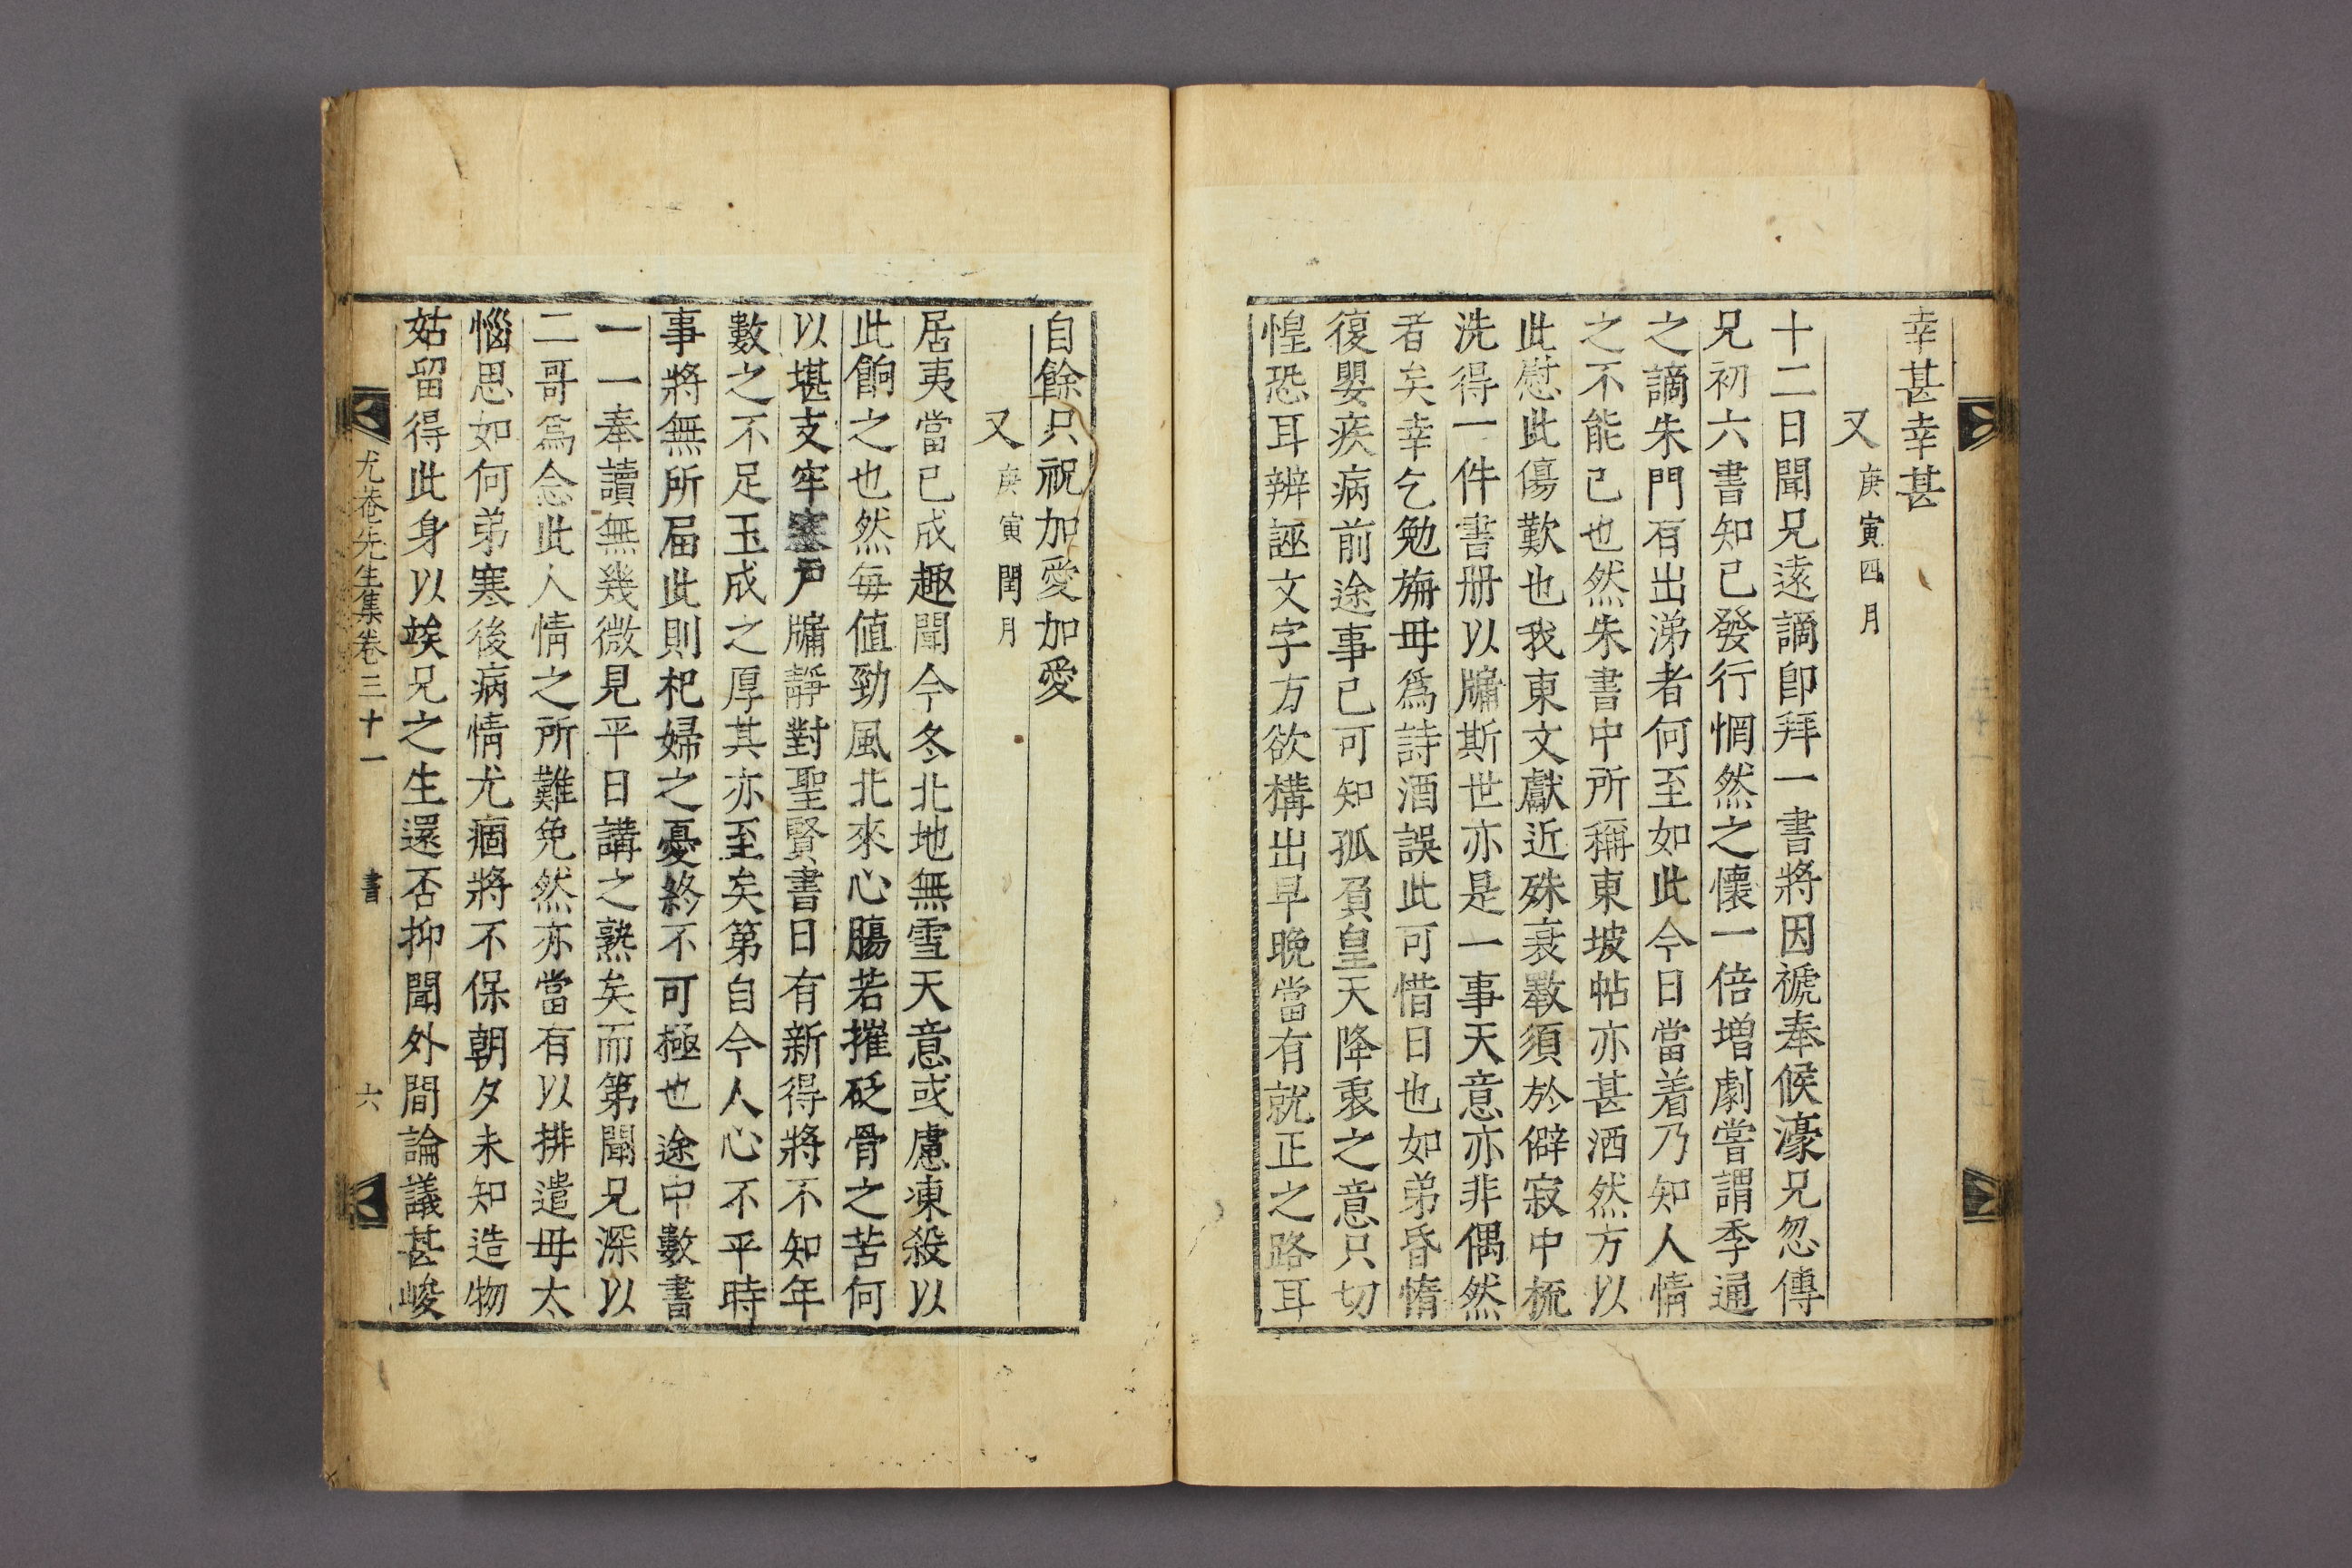 幸甚幸甚
又 庚寅四月
十二日聞兄遠謫卽拜一書將因褫奉候濠兄忽傳
兄初六書知已發行惘然之懷一倍增劇嘗謂季通
之謫朱門有出涕者何至如此今日當着乃知人情
之不能已也然朱書中所稱東坡帖亦甚洒然方以
此慰此傷歎也我東文獻近殊衰斁須於僻寂中梳
洗得一件書册以牖斯世亦是一事天意亦非偶然
者矣幸乞勉旃毋爲詩酒誤此可惜日也如弟昏惰
復嬰疾病前途事已可知孤負皇天降衷之意只切
惶恐耳辨誣文字方欲構出早晩當有就正之路耳
自餘只祝加愛加愛
又 庚寅閏月
居夷當已成趣聞今冬北地無雪天意或慮凍殺以
此餉之也然每値勁風北來心腸若摧砭骨之苦何
以堪支牢塞戶牖靜對聖賢書日有新得將不知年
數之不足玉成之厚其亦至矣第自今人心不平時
事將無所屆此則杞婦之憂終不可極也途中數書
一一奉讀無幾微見平日講之熟矣而第聞兄深以
二哥爲念此人情之所難免然亦當有以排遣毋太
惱思如何弟寒後病情尤痼將不保朝夕未知造物
姑留得此身以竢兄之生還否抑聞外間論議甚峻
尤菴先生集卷三十一 書 六